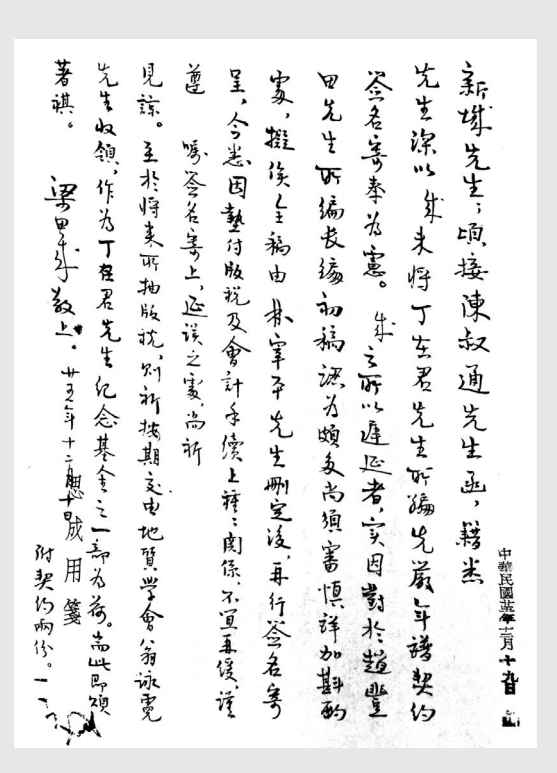 中華民國廿五年十二月十九日
新城先生：頃接陳叔通先生函，藉悉
先生深以成未將丁在君先生所編先嚴年譜契約
簽名寄奉為憲。成之所以遲延者，实因對於趙豐
田先生所编長编初稿認为頗多尚須審慎詳加斟酌
處，擬俟全稿由林宰平先生刪定後，再行簽名寄
呈，今悉因墊付版税及會計手續上種：関係，不宜再缓，谨
遵嘱签名寄上，延误之處，尚祈
見諒。至於将来所抽版税，则祈按期交由地質學會翁詠霓
先生收領，作为丁在君先生纪念基金之一部为荷。耑此即頌
著祺。
梁思成敬上。廿五年十二月十日
思成用箋
附契约兩份。